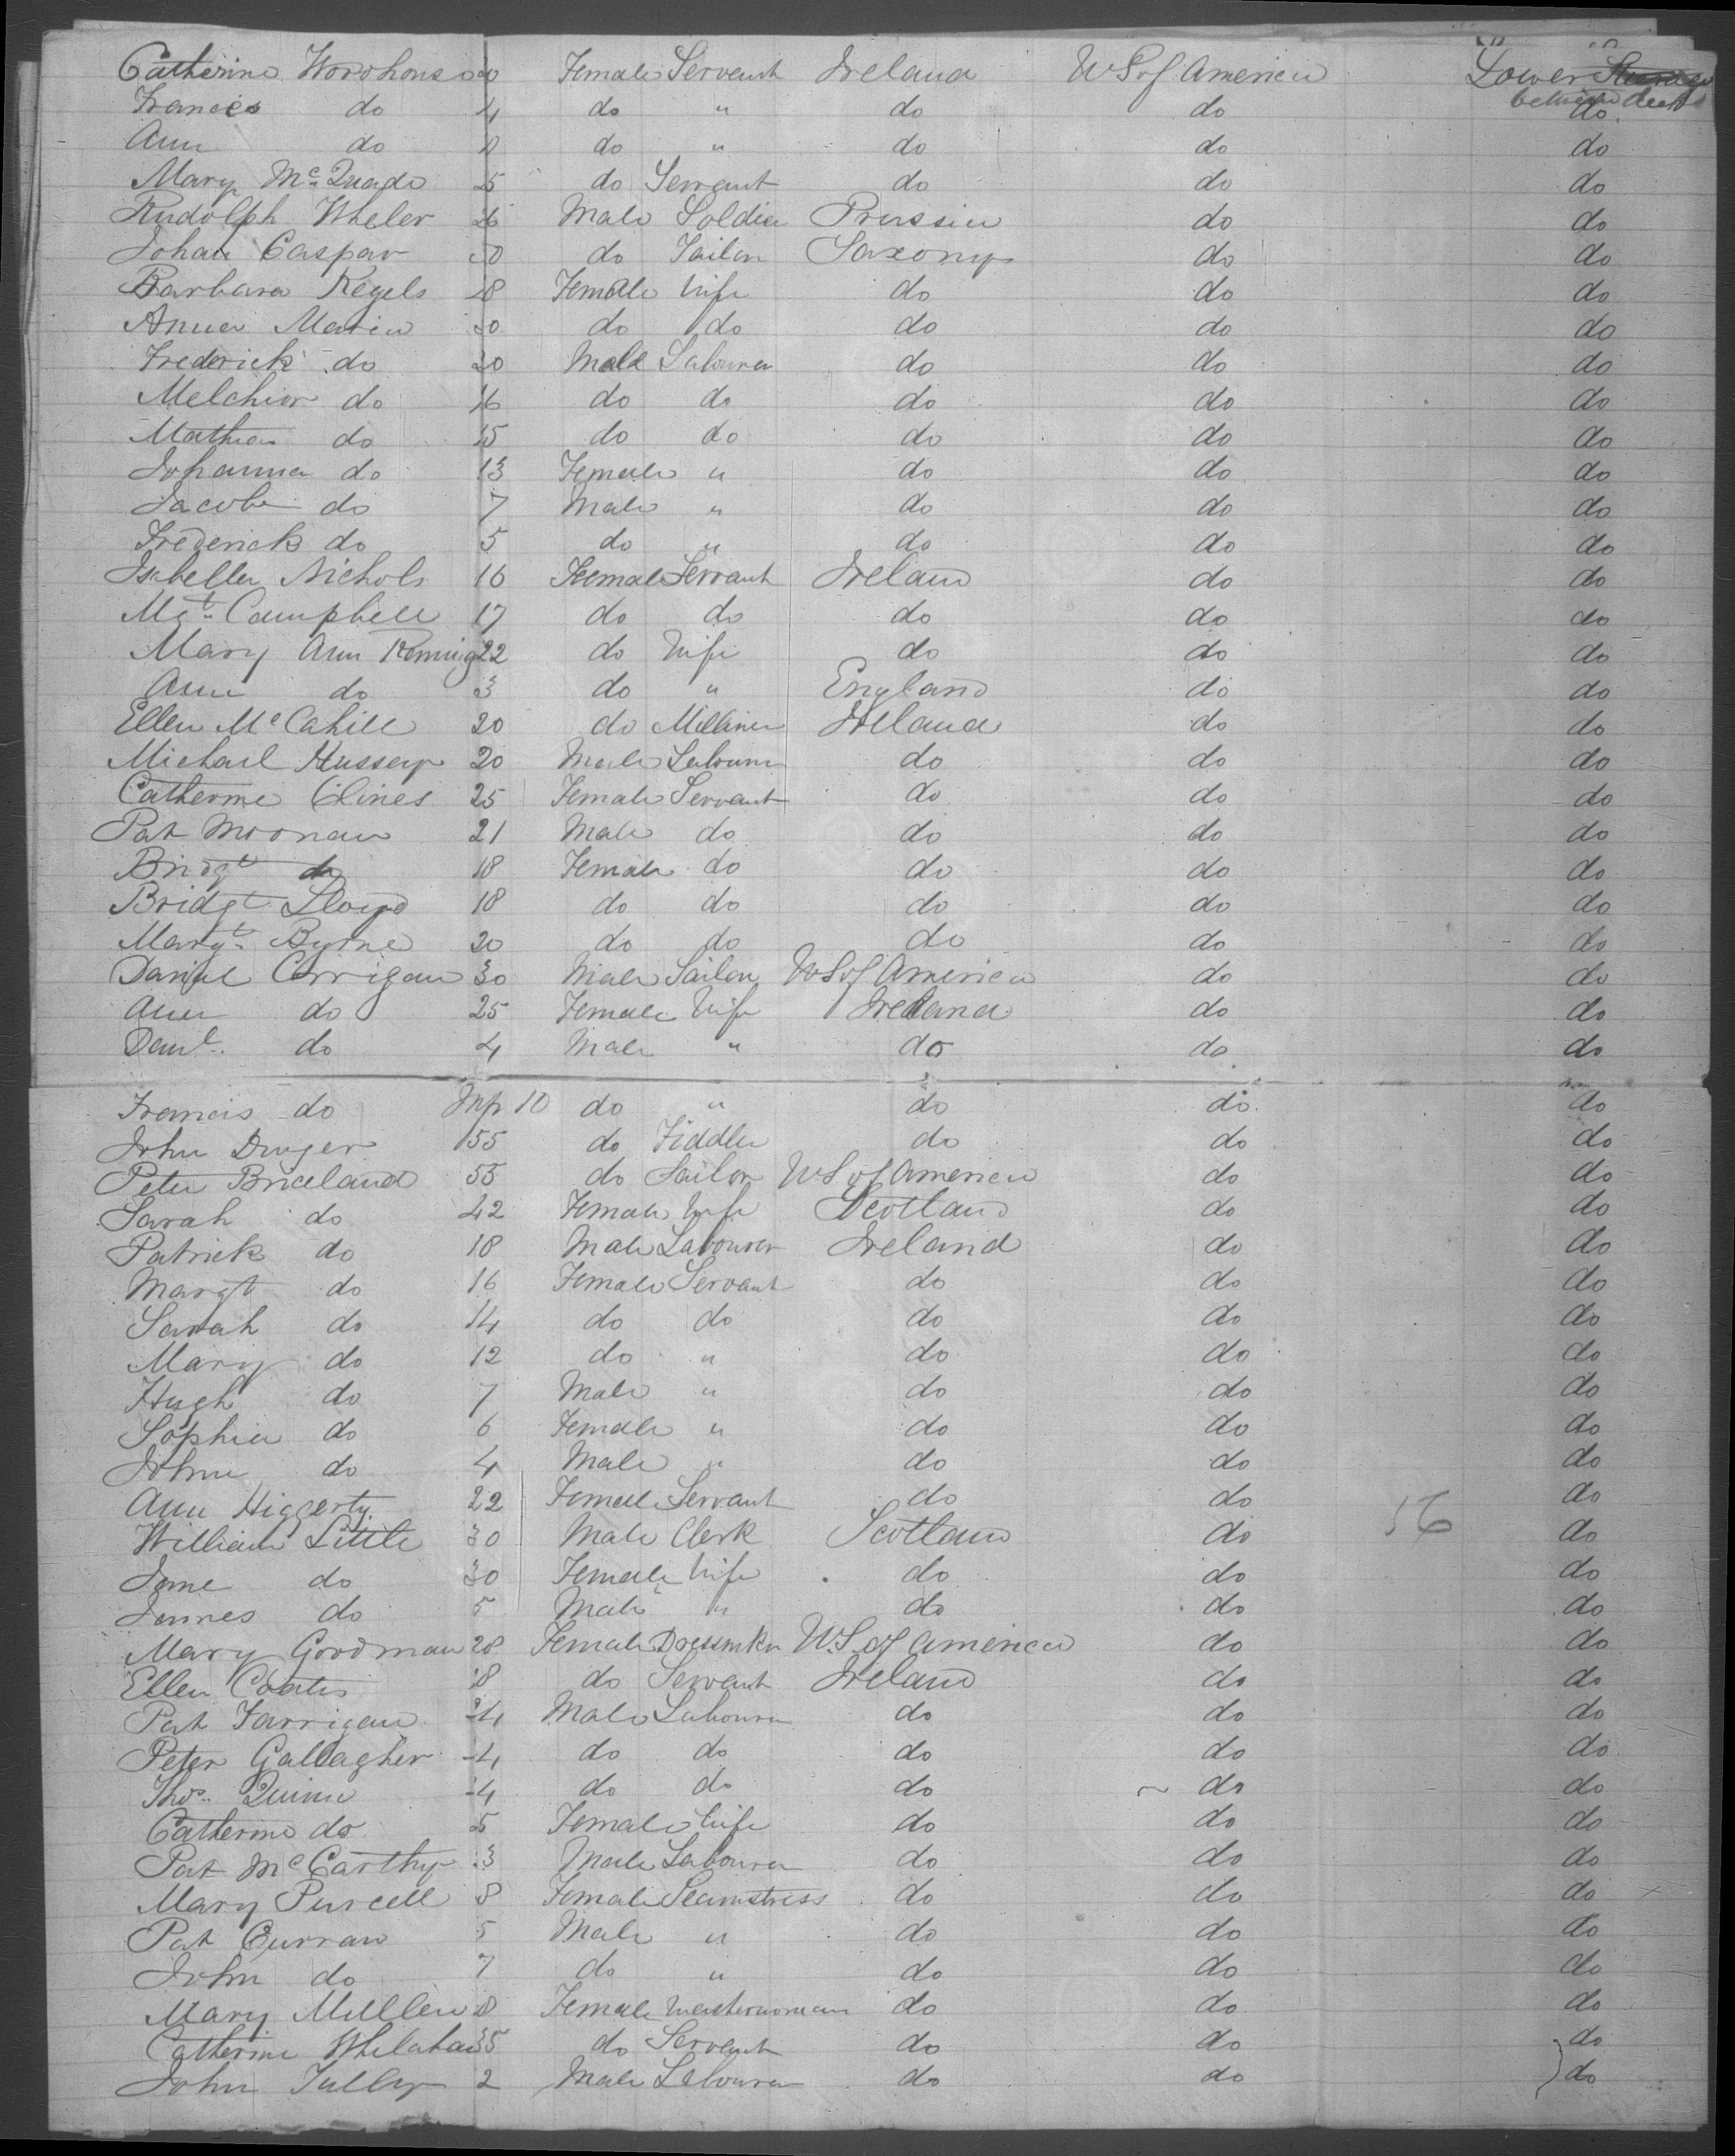 Catherine Woodhouse 20 Female Servant Ireland U S of America Lower Steerage
between decks
Frances do 4 do " do do do
Ann do do " do do do
Mary McQuade 25 do Servant do do do
Rudolph Wheler 26 Male Soldier Prussia do do
Johan Caspar do Tailor Saxony do do
Barbara Regels 28 Female Wife do do do
Anna Maria do do do do do
Frederick do 20 Male Labourer do do do
Melchior do 16 do do do do do
Mathias do 15 do do do do do
Johanna do 13 Female " do do do
Jacob do 7 Male " do do do
Frederick do 5 do " do do do
Isabella Nichols 16 Female Servant Ireland do do
Mgt Campbell 17 do do do do do
Mary Ann Koning 22 do Wife do do do
Ann do 3 do " England do do
Ellen McCahill 20 do Milliner Ireland do do
Michael Hussey 20 Male Labourer do do do
Catherine Clines 25 Female Servant do do do
Pat Moonan 21 Male do do do do
Bridgt do 18 Female do do do do
Bridgt Lloyd 18 do do do do do
Margt Byrne 20 do do do do do
Daniel Corrigan 30 Male Sailor U S of America do do
Ann do 25 Female Wife Ireland do do
Danl do 4 Male " do do do
Francis do Inf 10 do " do do do
John Dwyer 55 do Fiddler do do do
Peter Briceland 55 do Sailor U S of America do do
Sarah do 42 Female Wife Scotland do do
Patrick do 18 Male Labourer Ireland do do
Margt do 16 Female Servant do do do
Sarah do 14 do do do do do
Mary do 12 do " do do do
Hugh do 7 Male " do do do
Sophia do 6 Female " do do do
John do 4 Male " do do do
Ann Higgerty 22 Female Servant do do do
William Little 30 Male Clerk Scotland do 56 do
Jane do 30 Female Wife do do do
James do 5 Male " do do do
Mary Goodman 28 Female Dressmkr U.S. of America do do
Ellen Coates 18 do Servant Ireland do do
Pat Farrigan 24 Male Labourer do do do
Peter Gallagher 24 do do do do do
Thos. Quinn 24 do do do do do
Catherine do 25 Female Wife do do do
Pat McCarthy 3 Male Labourer do do do
Mary Purcell 8 Female Seamstress do do do
Pat Curran 5 Male " do do do
John do 7 do " do do do
Mary Mullen 8 Female Washerwoman do do do
Catherine Whelahan 35 do Servant do do do
John Tully 2 Male Labourer do do do